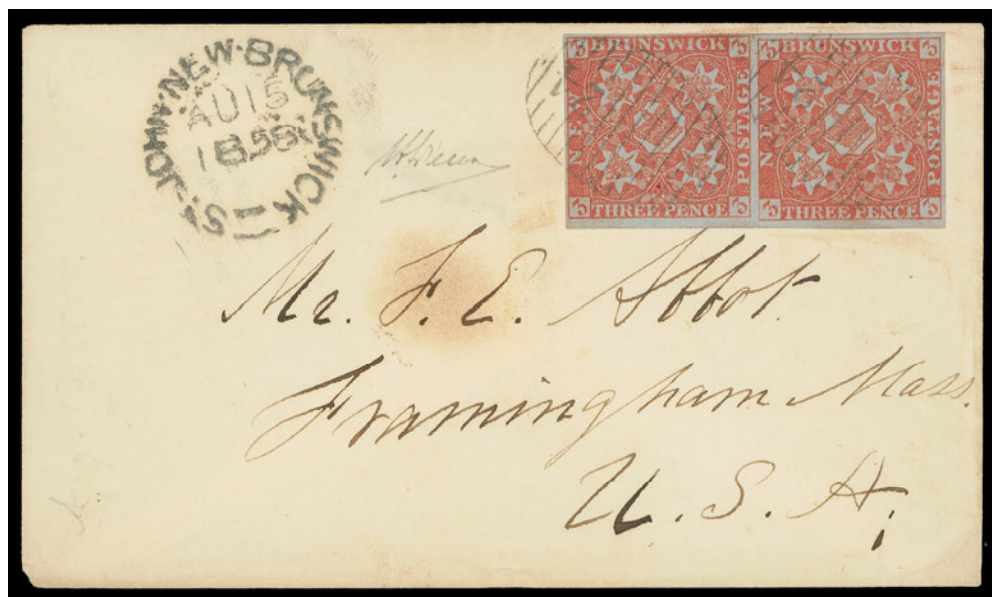 ST. JOHN · NEW-BRUNSWICK
AU 15
1858
BRUNSWICK
NEW
POSTAGE
THREE PENCE
3 3 3 3
BRUNSWICK
NEW
POSTAGE
THREE PENCE
3 3 3 3
Mr. F. E. Abbot.
Framingham Mass.
U. S. A,